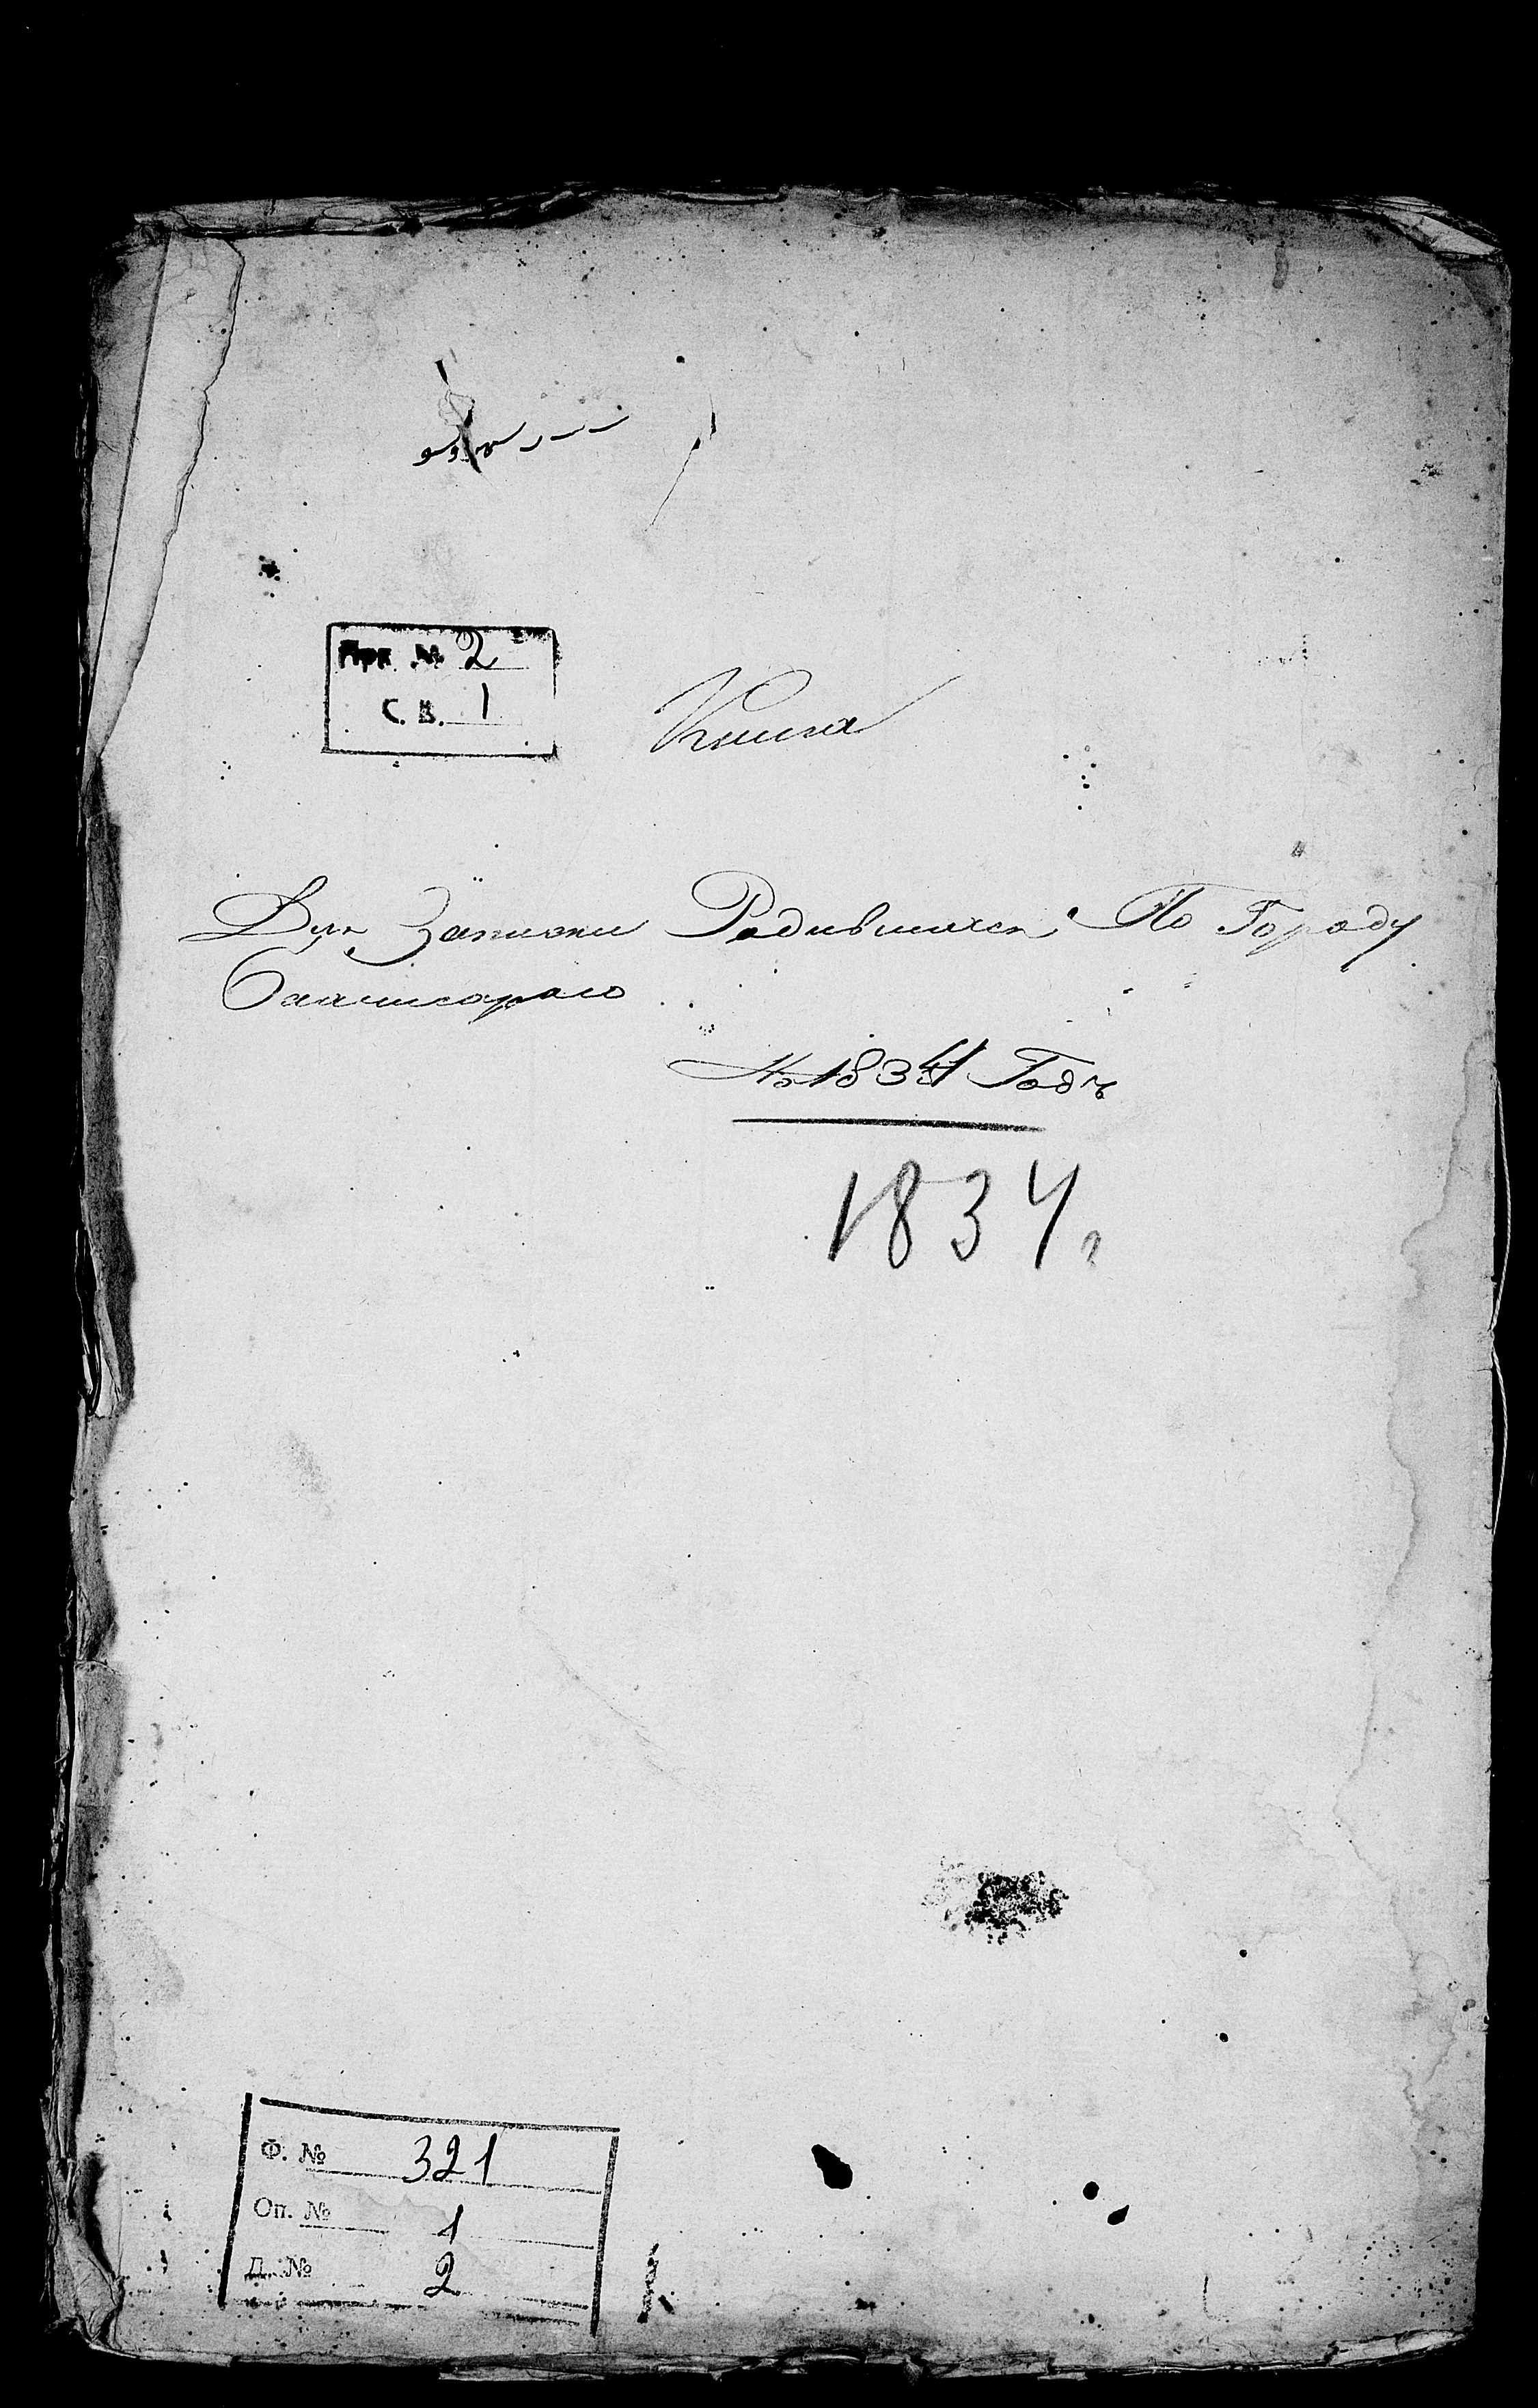 Арх № 2
С. В. 1
Книга
Для Записки Родившихся По Городу
Бахчисараю
На 1834 Годъ
1834 г
Ф. № 321
Оп. № 1
Д. № 2